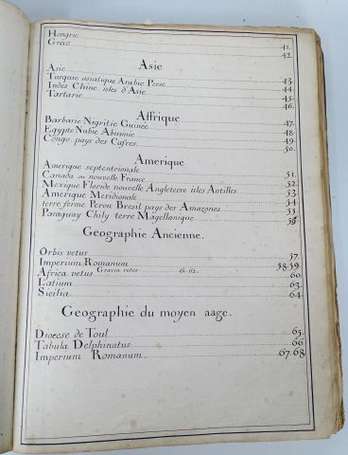 Hongrie 41.
Grece 42.
Asie
Asie 43
Turquie asiatique Arabie Perse 44
Indes Chine isles d'Asie 45.
Tartarie 46.
Affrique
Barbarie Negritie Guinée 47.
Egypte Nubie Abissinie 48
Congo pays des Cafres 49.
50.
Amerique
Amerique septentrionale 51.
Canada ou nouvelle France 52.
Mexique Floride nouvelle Angleterre isles Antilles 53
Amerique Meridionale 54
terre ferme Perou Bresil pays des Amazones 55
Paraguay Chily terre Magellanique 56
Geographie Ancienne.
Orbis vetus 57.
Imperium Romanum 58.59
Africa vetus Græcia vetus 61.62. 60
Latium 63.
Sicilia 64.
Geographie du moyen aage.
Diocese de Toul 65.
Tabula Delphinatus 66
Imperium Romanum 67.68